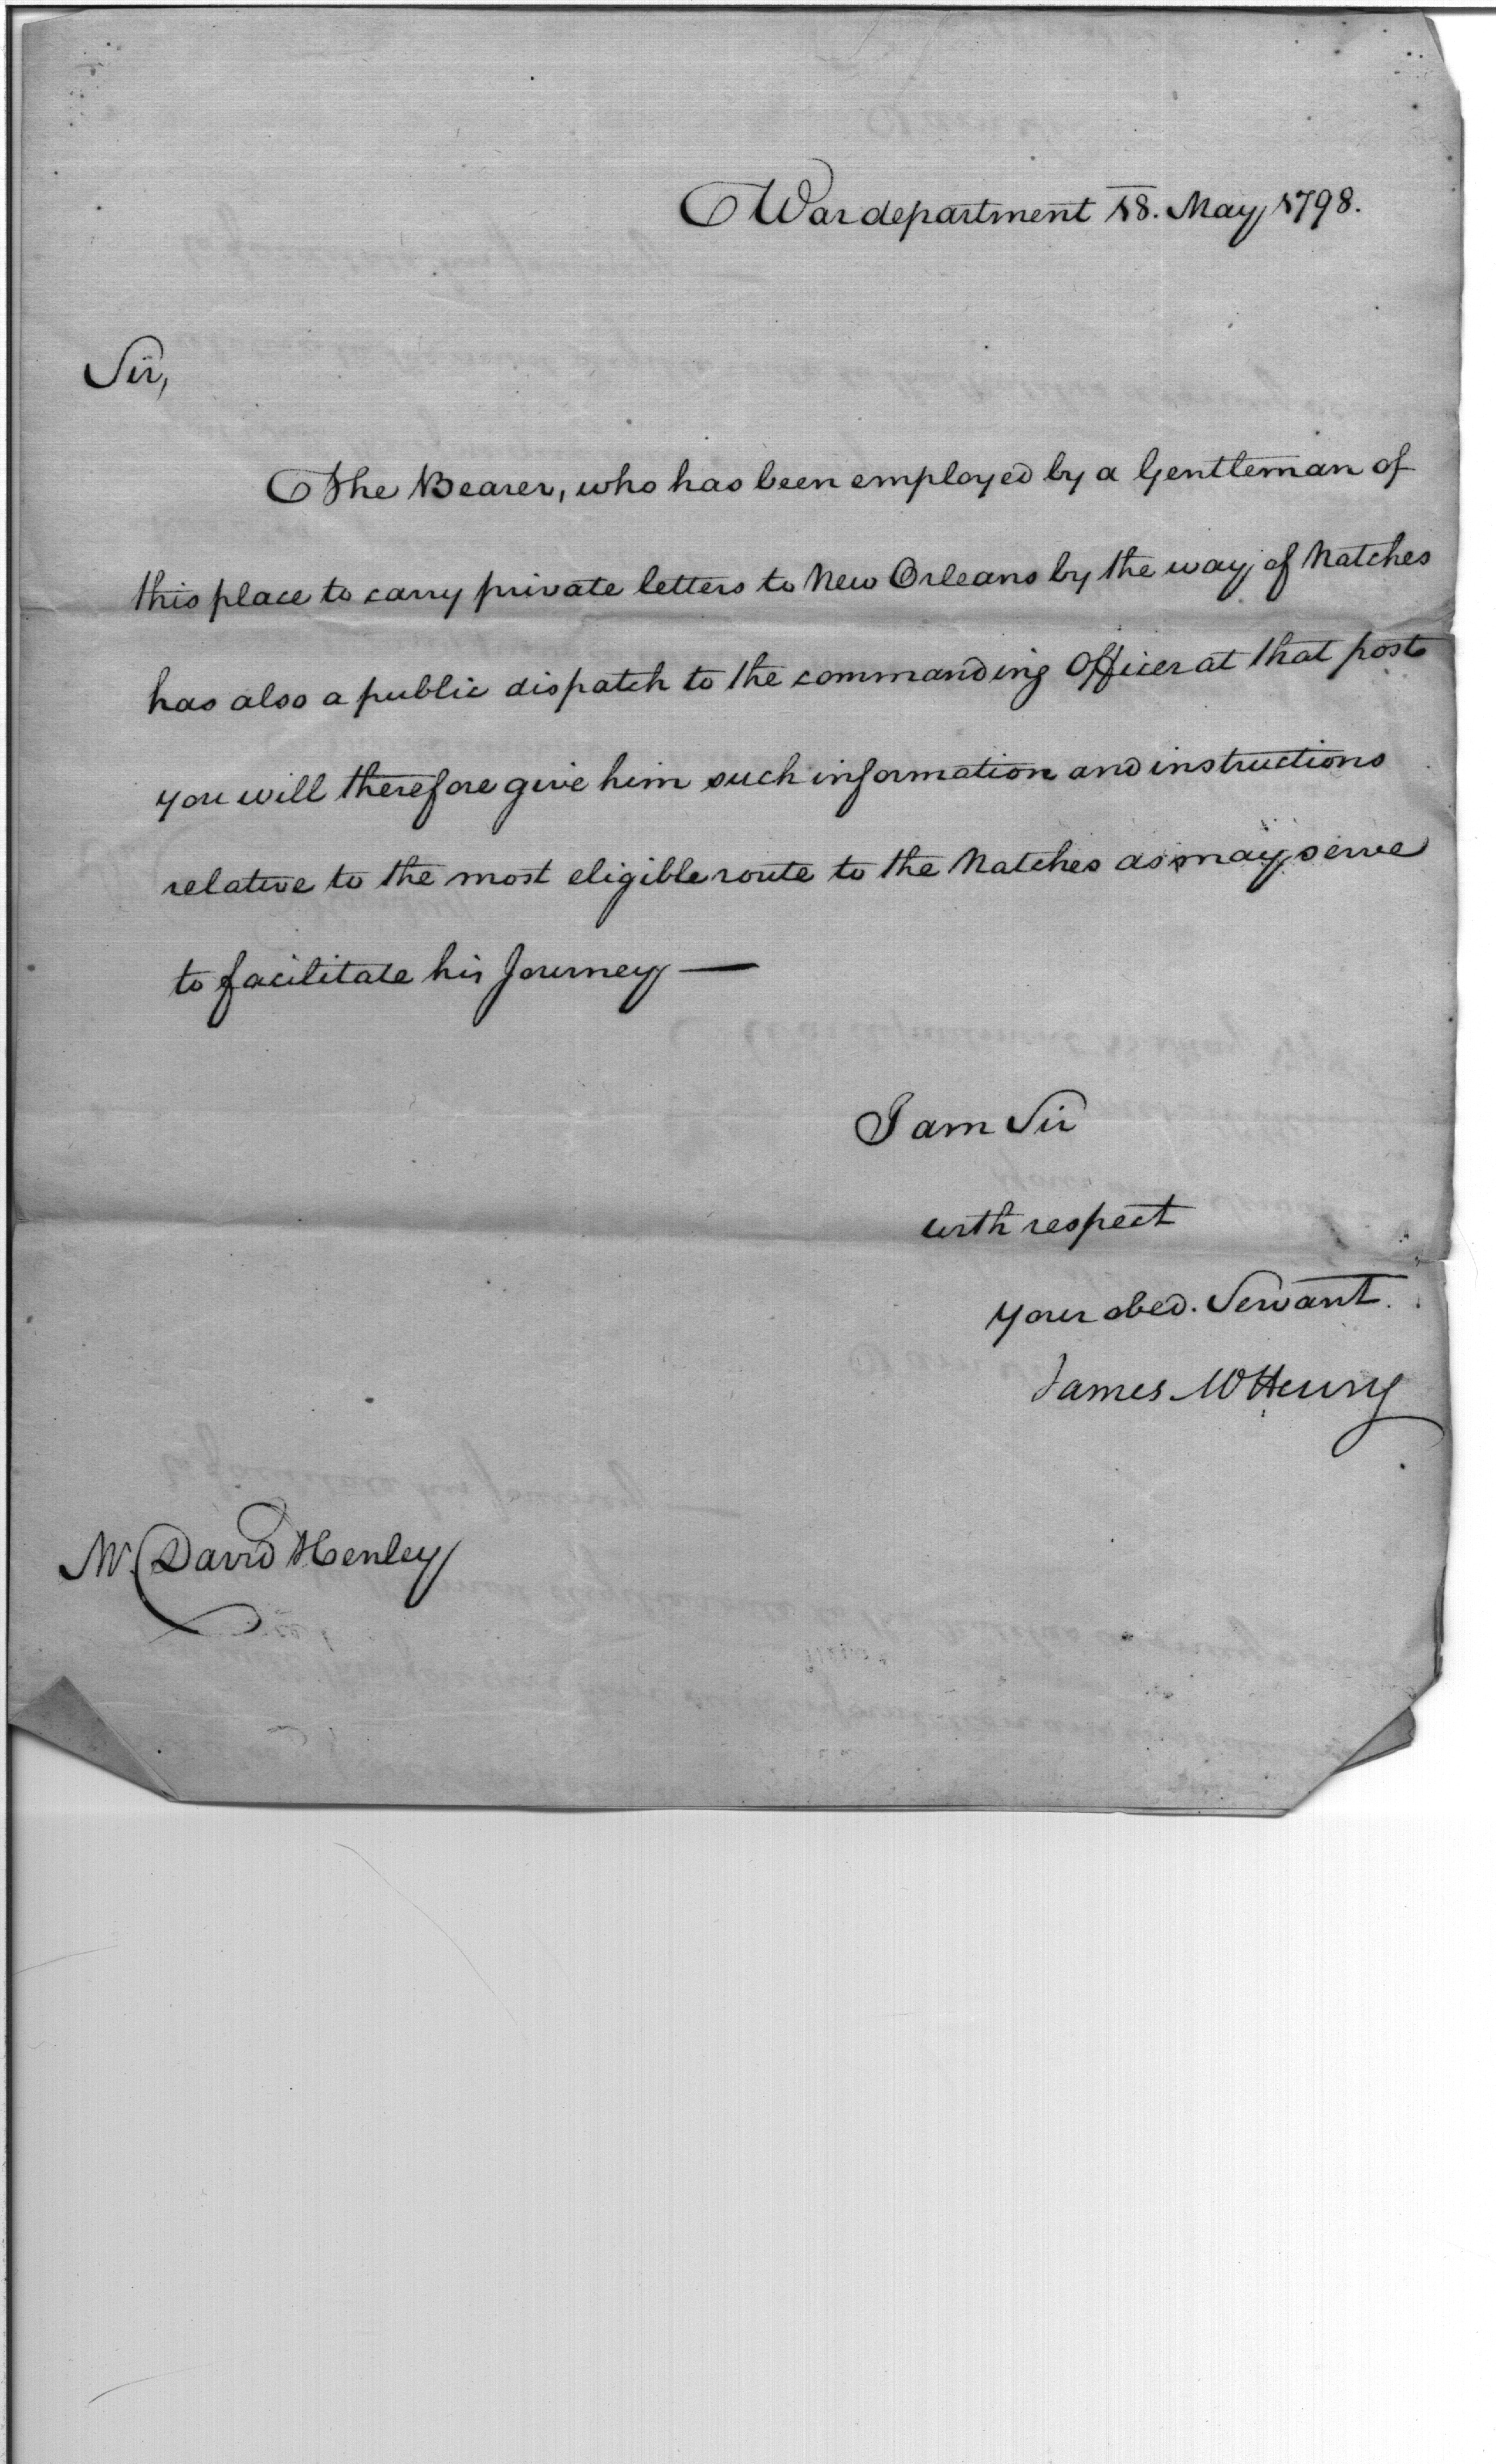 War department 18. May 1798.
Sir,
The Bearer, who has been employed by a Gentleman of
this place to carry private letters to New Orleans by the way of Natches
has also a public dispatch to the commanding Officer at that post
you will therefore give him such information and instructions
relative to the most eligible route to the Natches as may serve
to facilitate his Journey —
I am Sir
with respect
your obed. Servant.
James McHenry
Mr. David Henley